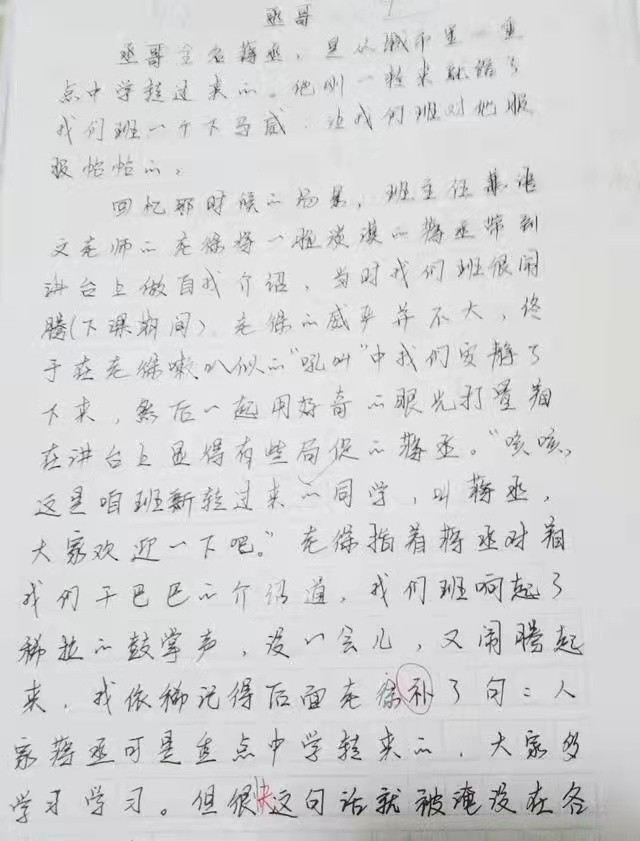 丞哥
丞哥全名蒋丞,是从城市里一重
点中学转过来的。他刚一转来就给了
我们班一个下马威,让我们班对他服
服帖帖的。
回忆那时候的场景,班主任兼语
文老师的老徐将一脸淡漠的蒋丞带到
讲台上做自我介绍,当时我们班很闹
腾(下课期间)老徐的威严并不大,终
于在老徐喇叭似的“吼叫”中我们安静了
下来,然后一起用好奇的眼光打量着
在讲台上显得有些局促的蒋丞。“咳咳,
这是咱班新转过来的同学,叫蒋丞,
大家欢迎一下吧。”老徐指着蒋丞对着
我们干巴巴的介绍道,我们班响起了
稀拉的鼓掌声,没一会儿,又闹腾起
来,我依稀记得后面老徐补了句:人
家蒋丞可是重点中学转来的,大家多
学习学习。但很快这句话就被淹没在各